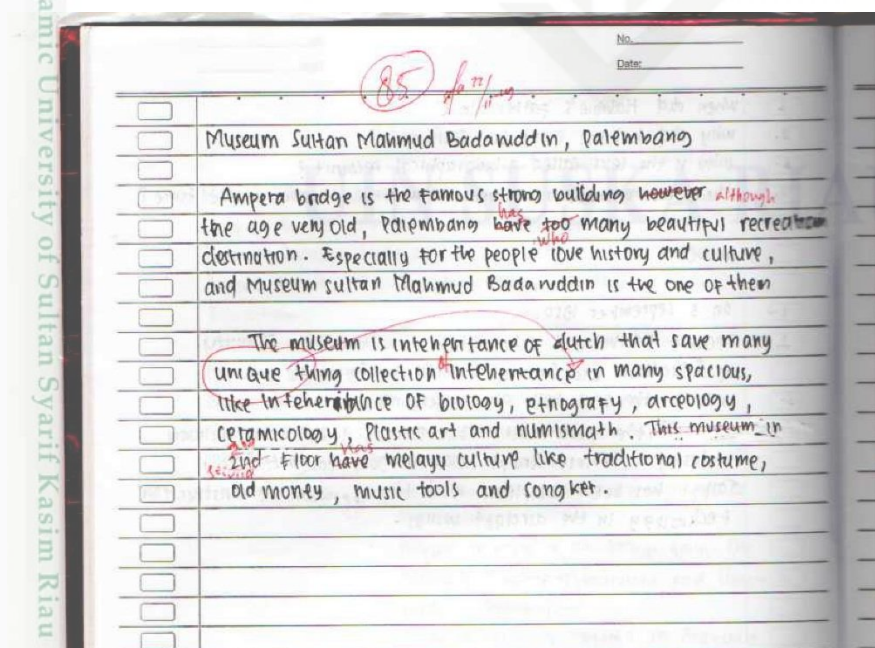 No.
Date:
85
Museum Sultan Mahmud Badaruddin, Palembang
Ampera bridge is the famous strong building however although
the age very old, Palembang have has too many beautiful recreation
destination. Especially for the people who love history and culture,
and Museum sultan Mahmud Badaruddin is the one of them
The museum is inteheritance of dutch that save many
unique thing collection of inteheritance in many spacious,
like inteheritance of biology, etnografy, arceology,
ceramicology, Plastic art and numismath. This museum in
2nd Floor have has melayu culture like traditional costume,
old money, music tools and songket.
amic University of Sultan Syarif Kasim Riau